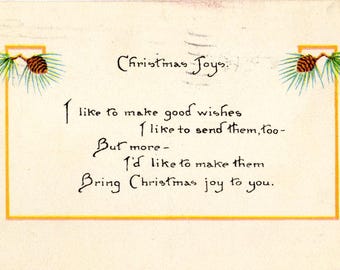 Christmas Joys.
I like to make good wishes
I like to send them, too-
But more-
I'd like to make them
Bring Christmas joy to you.